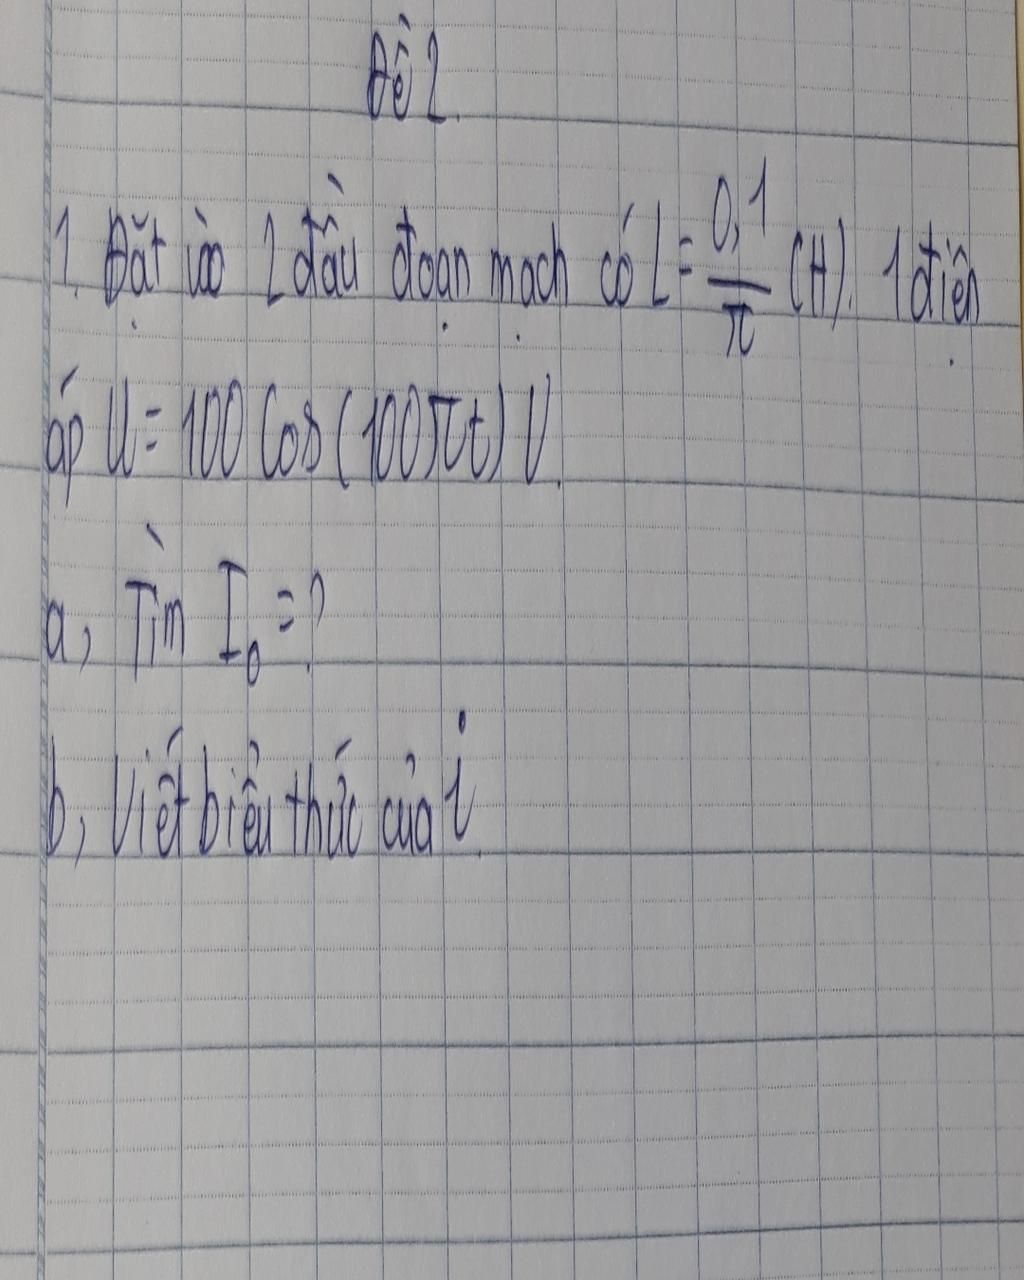 Đề 2.
1. Đặt vào 2 đầu đoạn mạch có L = 0,1/π (H). 1 điện
áp U = 100 Cos (100πt) V.
a, Tìm I₀ = ?
b, Viết biểu thức của i.